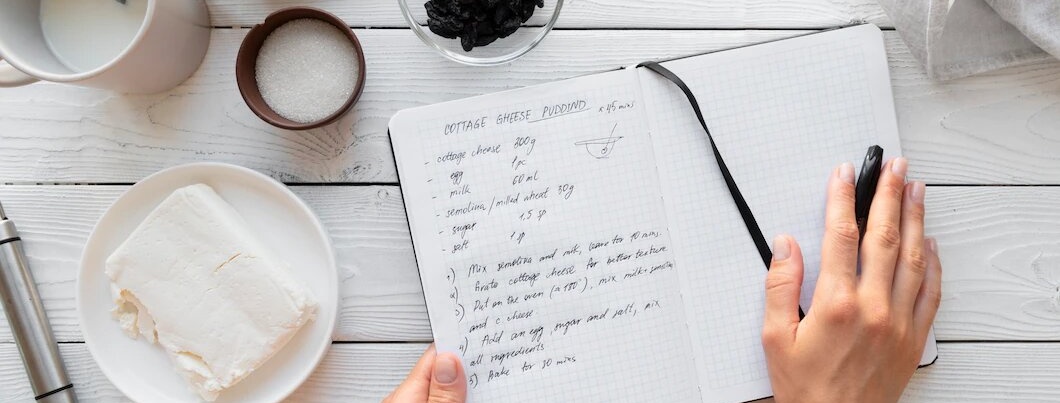 COTTAGE GHEESE PUDDIND × 45 mins
- cottage cheese 300g
- egg 1 pc
- milk 60 ml
- semolina / milled wheat 30g
- sugar 1,5 sp
- salt 1 sp
1) Mix semolina and milk, leave for 10 mins.
2) Grate cottage cheese for better texture
3) Put on the oven (≈ 180°), mix milk + semolina
and c cheese.
4) Add an egg, sugar and salt, mix
all ingredients
5) Bake for 30 mins